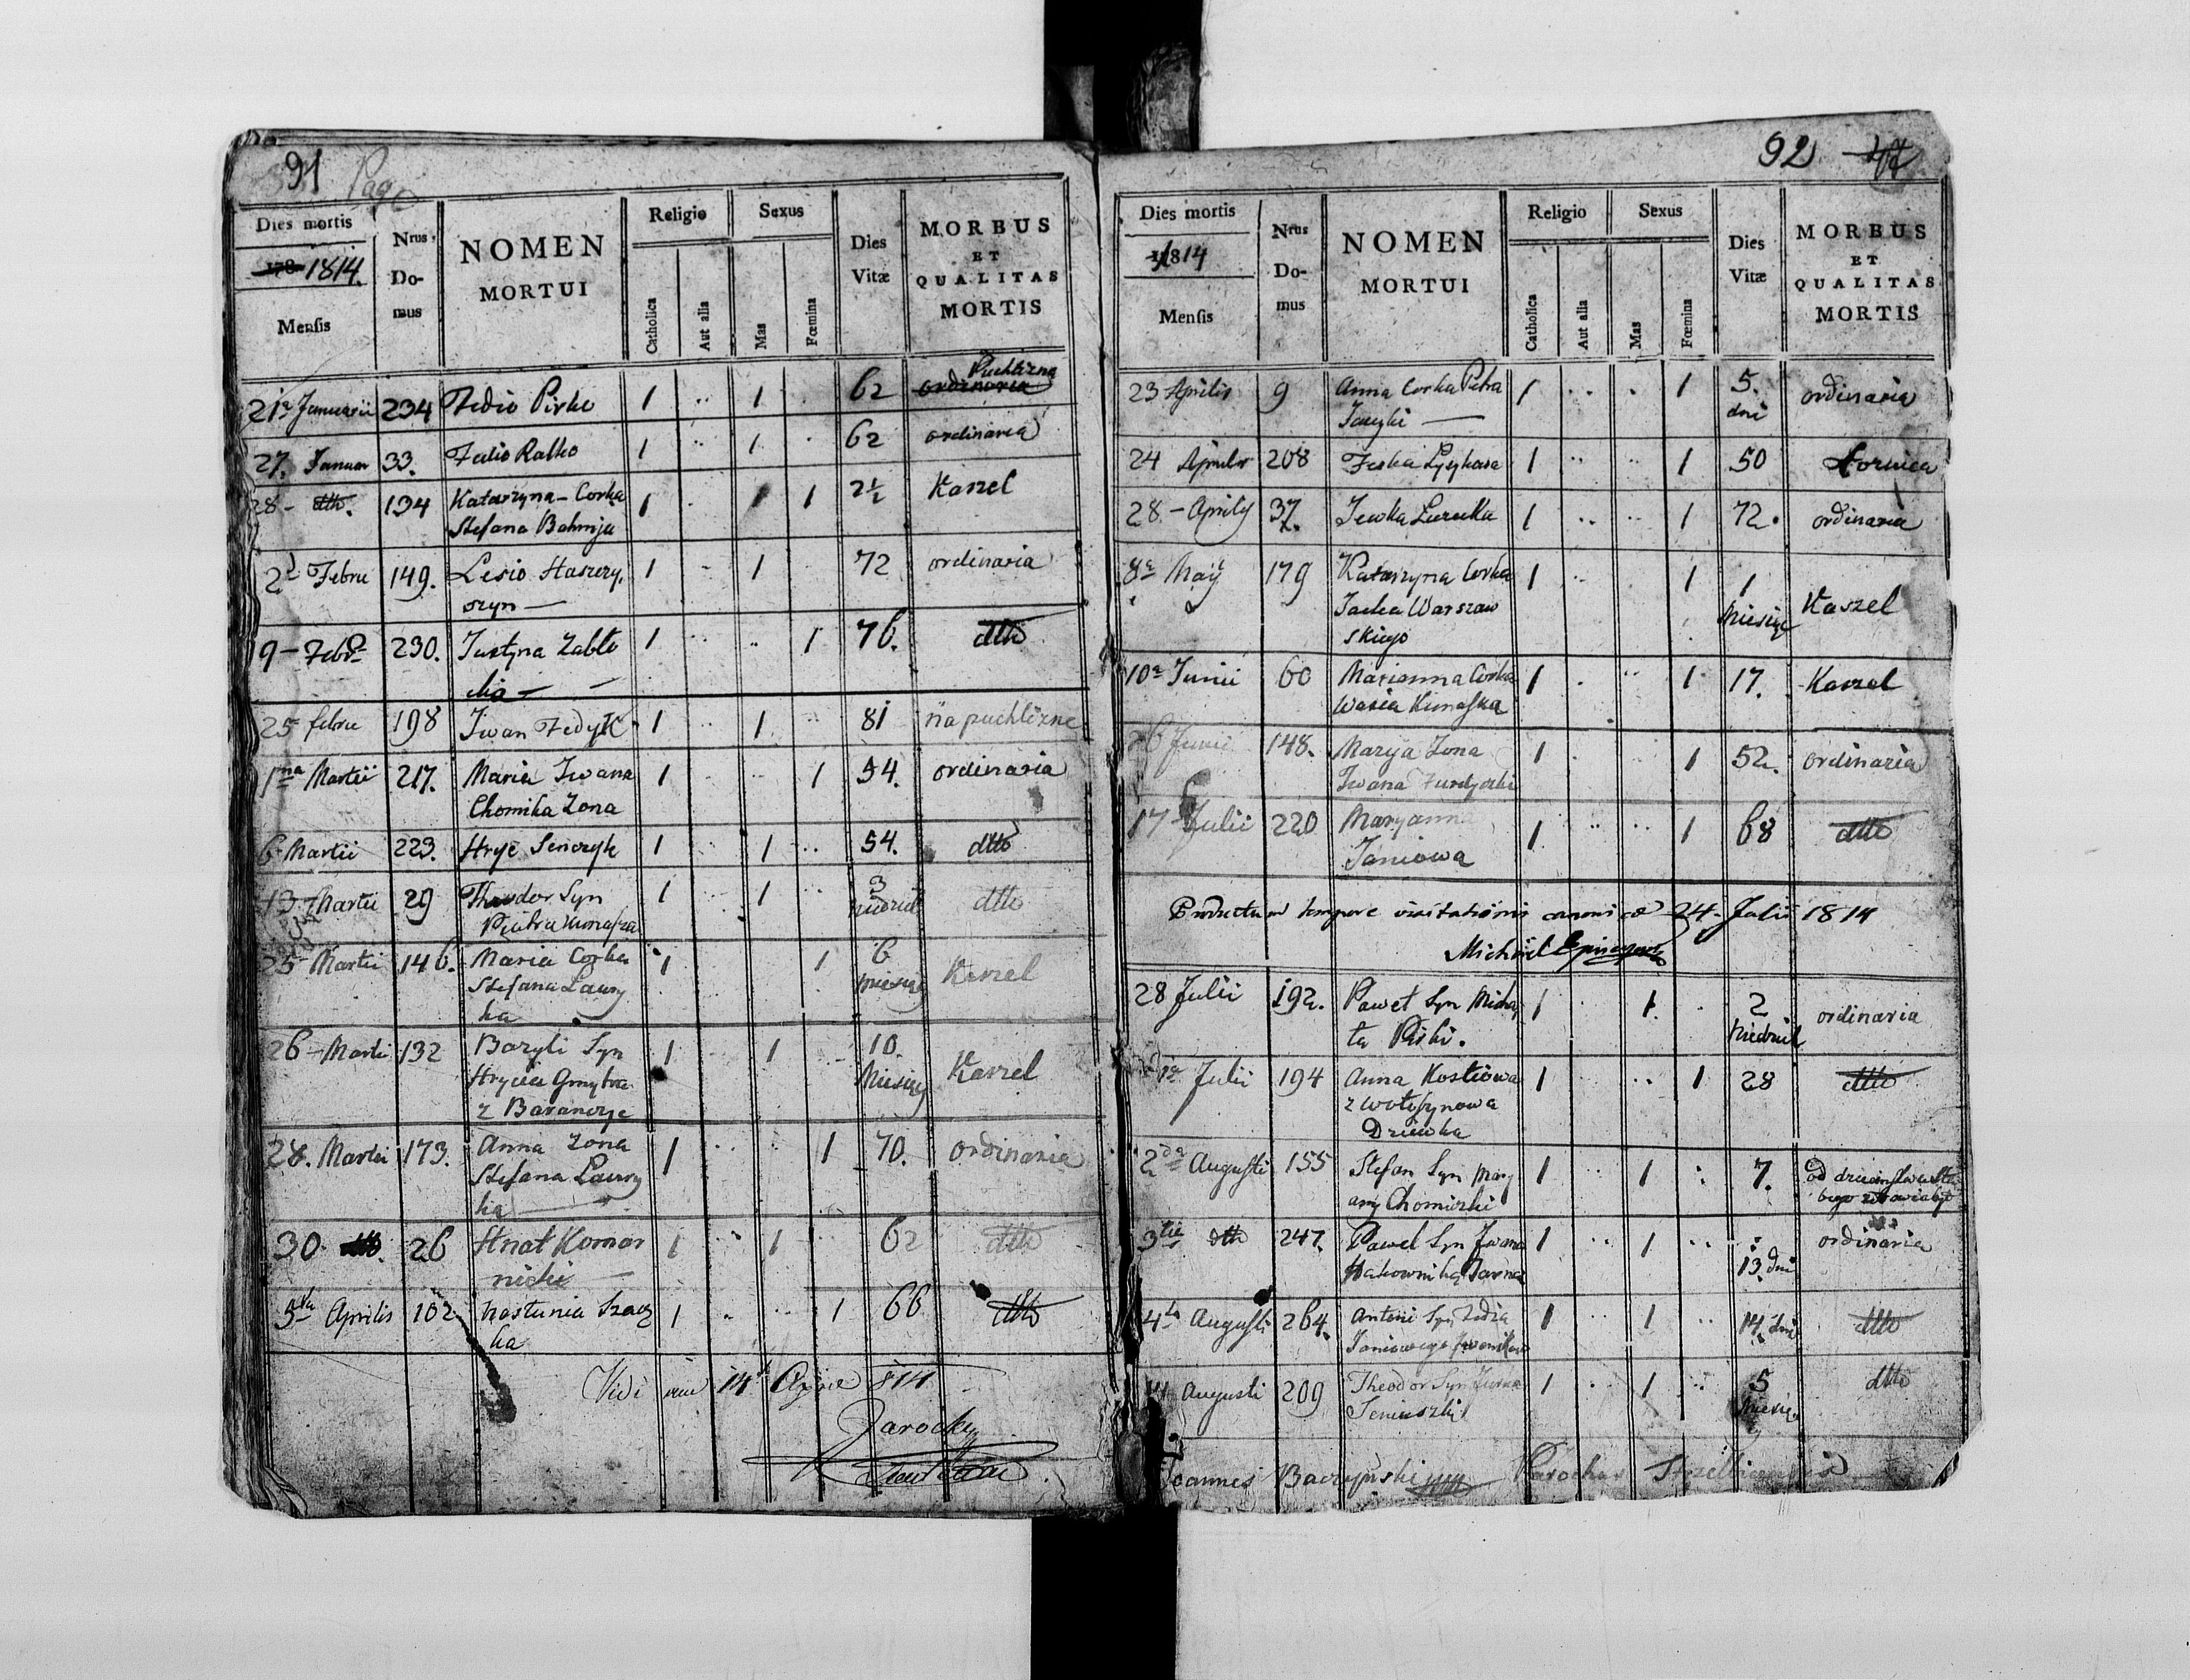 91 Pag
Dies mortis
178 1814.
Mensis
Nrus
Do-
mus
NOMEN
MORTUI
Religio
Catholica
Aut alia
Sexus
Mas
Fœmina
Dies
Vitæ
MORBUS
ET
QUALITAS
MORTIS
21a Januarii 234 Fedio Pirko 1 .. 1 . 62 ordinaria Puchlizna
27. Januar 33. Fedio Ratko 1 .. 1 . 62 ordinaria
28 - dtto. 134 Katarzyna Corka 1 . 1 2½ Kaszel
Stefana Bahnija
2d Febru 149. Lesio Staszczy, 1 - 1 . 72 ordinaria
szyn —
9 - Febr 230. Justyna Zabło 1 .. .. 1 76. dtto
cka —
25 febru 198 Iwan Fedyk 1 .. 1 .. 81 na puchlizne
1ma Martii 217. Maria Iwana 1 .. 1 54. ordinaria
Chomika Zona
6 Martii 223. Hryc Senczyk 1 .. 1 .. 54. dtto
13 Martii 29 Theodor Syn 1 .. 1 .. 3 dtto
Piotra Kunasza niedziel
25 Martii 146. Maria Corka 1 1 6 Kaszel
Stefana Lawry miesięcy
ka
26 - Martii 132 Bazyli Syn 1 1 10. Kaszel
Hrycia Gmytra Miesięcy
z Baranczyc
28. Martii 173. Anna Zona 1 1 70. ordinaria
Stefana Lawry
ka
30 dtto. 26 Hnat Komar 1 .. 1 .. 62 dtto
nicki
5ta Aprilis 102 Nastunia 1 .. 1 66 dtto
ka
Vidi 14 814
Jarocky
92 47
Dies mortis
1814
Mensis
Nrus
Do-
mus
NOMEN
MORTUI
Religio
Catholica
Aut alia
Sexus
Mas
Fœmina
Dies
Vitæ
MORBUS
ET
QUALITAS
MORTIS
23 Aprilis 9 Anna Corka Petra 1 .. . 1 5. ordinaria
dni
24 Aprilis 208 1 .. .. 1 50
28 - Aprilis 37. Jewka 1 .. .. 1 72. ordinaria
8a Maÿ 179 Katarzyna Corka 1 .. 1 1 Kaszel
Jacka Warszaw Miesiąc
skiego
10a Junii 60 Marianna Corka 1 . .. 1 17. Kaszel
Wasia Kunaszka
26 Junii 148. Marya Zona 1 . 1 52. ordinaria
Iwana
17 Julii 220 Maryanna 1 .. .. 1 68 dtto
Janiowa
Productum tempore visitationis canonicæ 24. Julii 1814
Michael Episcopus
28 Julii 192. Paweł Syn Micha 1 . 1. . 2 ordinaria
ła Niedziel
Julii 194 Anna Kostiowa 1 .. 1 28 dtto
z Wołoszynowa
Dziewka
2da Augusti 155 Stefan Syn Mary 1 1 : 7.
any Chomiszki
3tia dtto 247. Pawel Syn Iwana 1 . 1 .. 13 dni ordinaria
4ta Augusti 264. Antoni Syn Fedia 1 1 .. 14 dni dtto
Janiowego
14 Augusti 209 Theodor Syn 1 . 1 .. 5 dtto
Miesięcy
Joannes Baczyński mpp Parochus